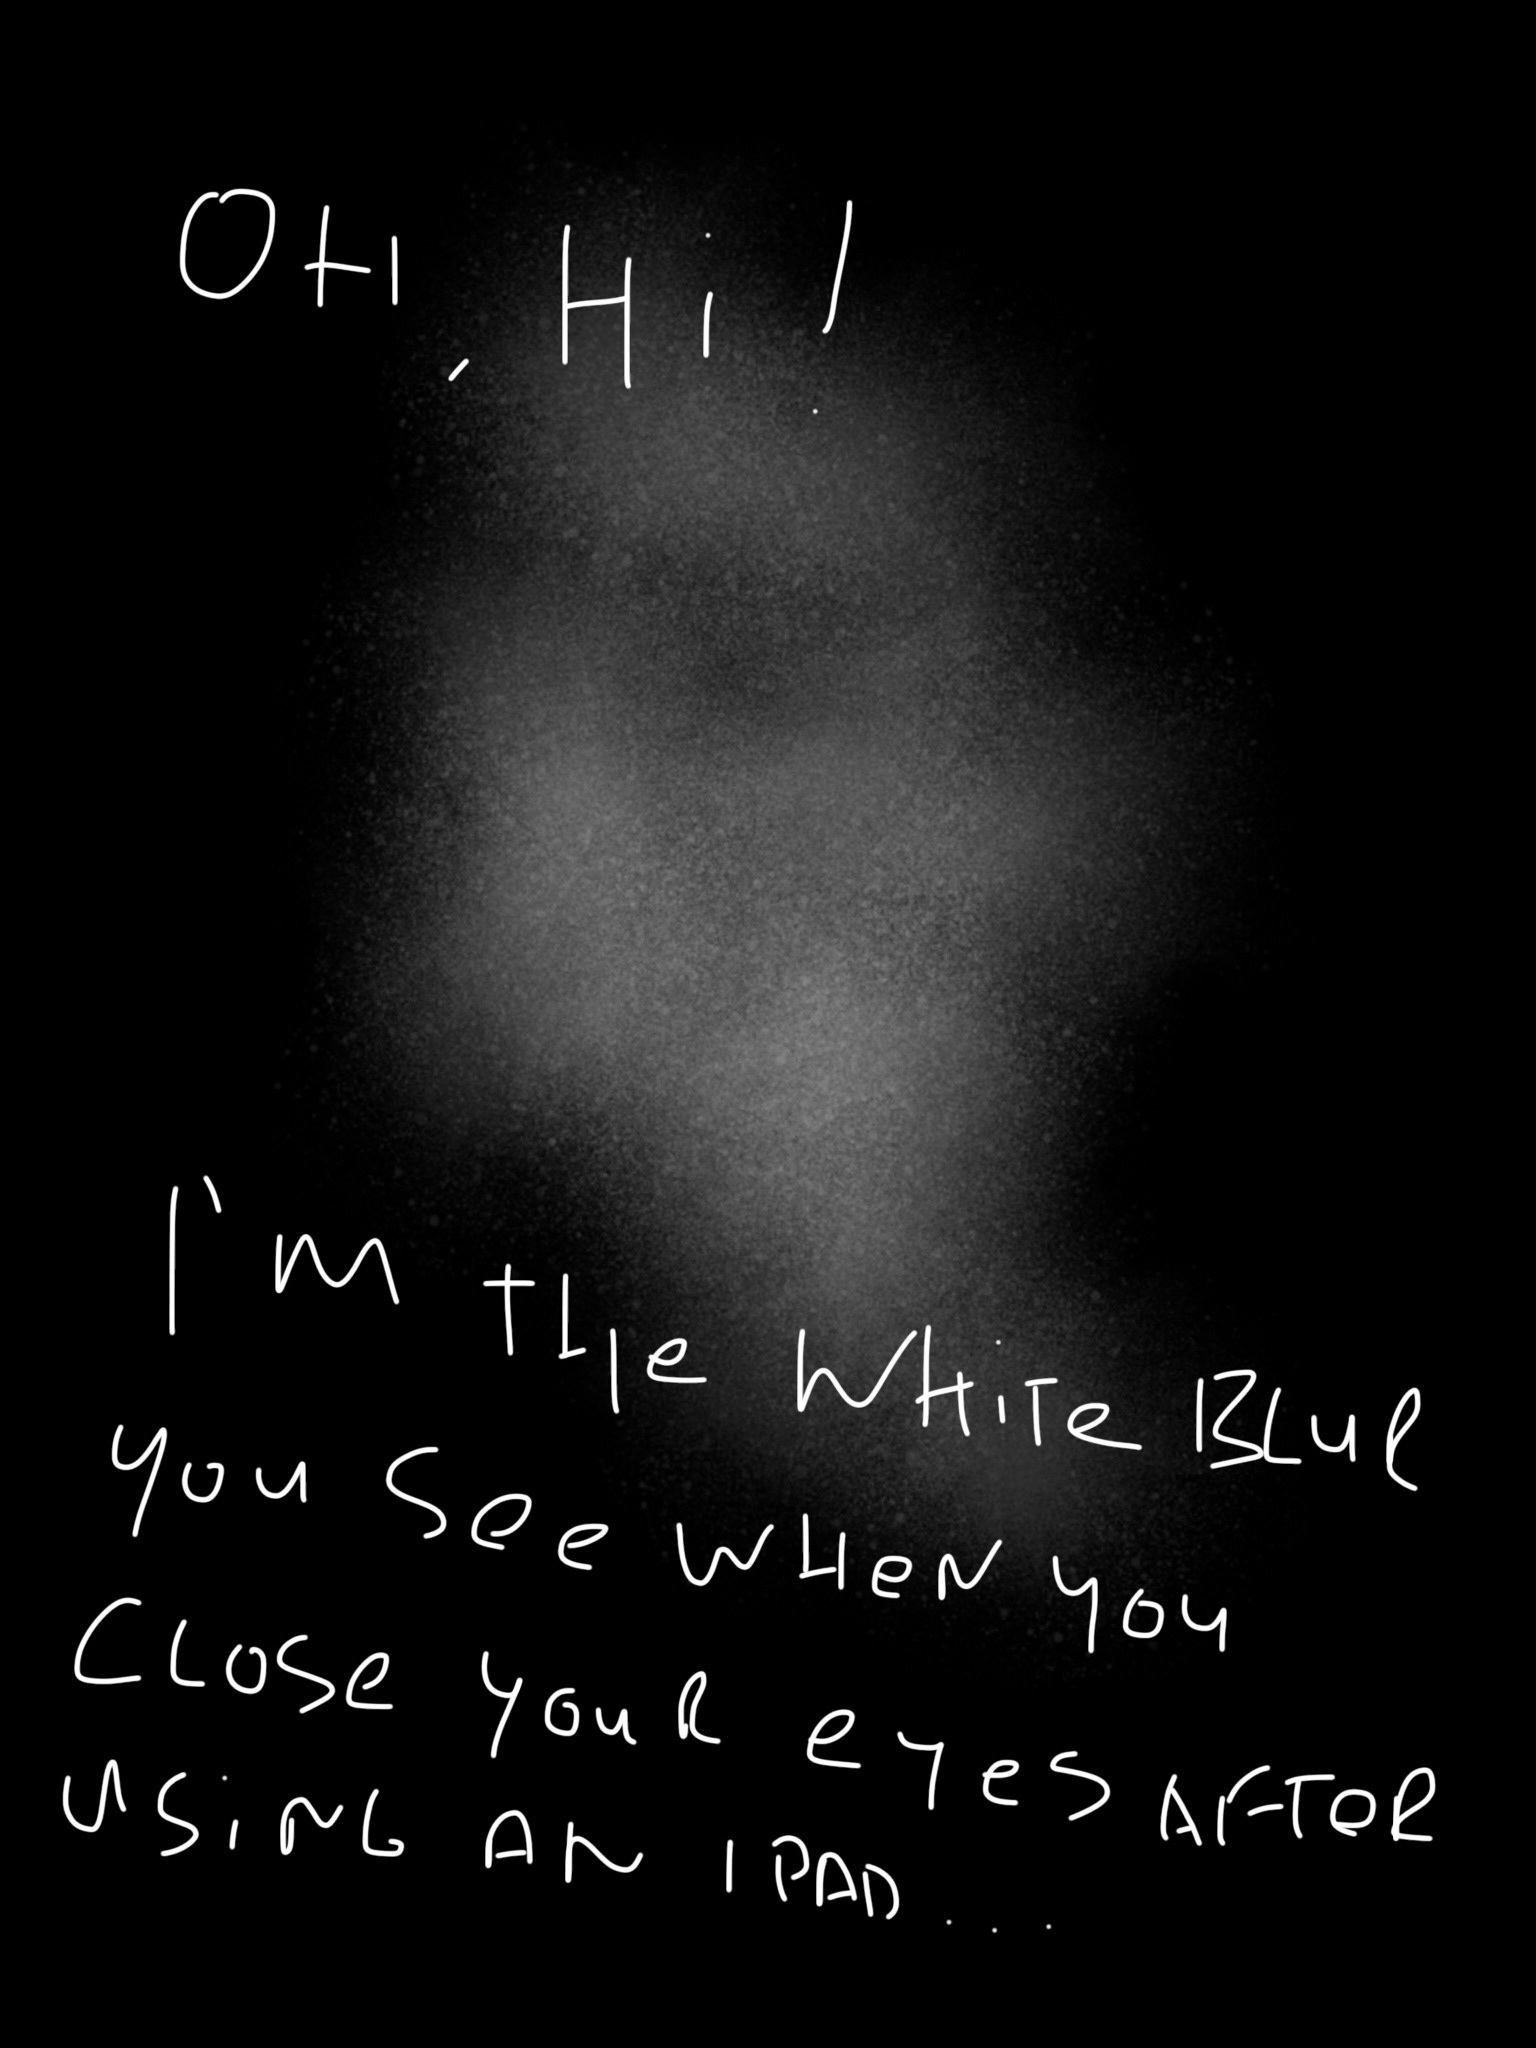 OH, Hi!
I'm the WHiTe BLUR
you See WHeN you
CLOSe youR eyeS AFTeR
USiNG AN IPAD...